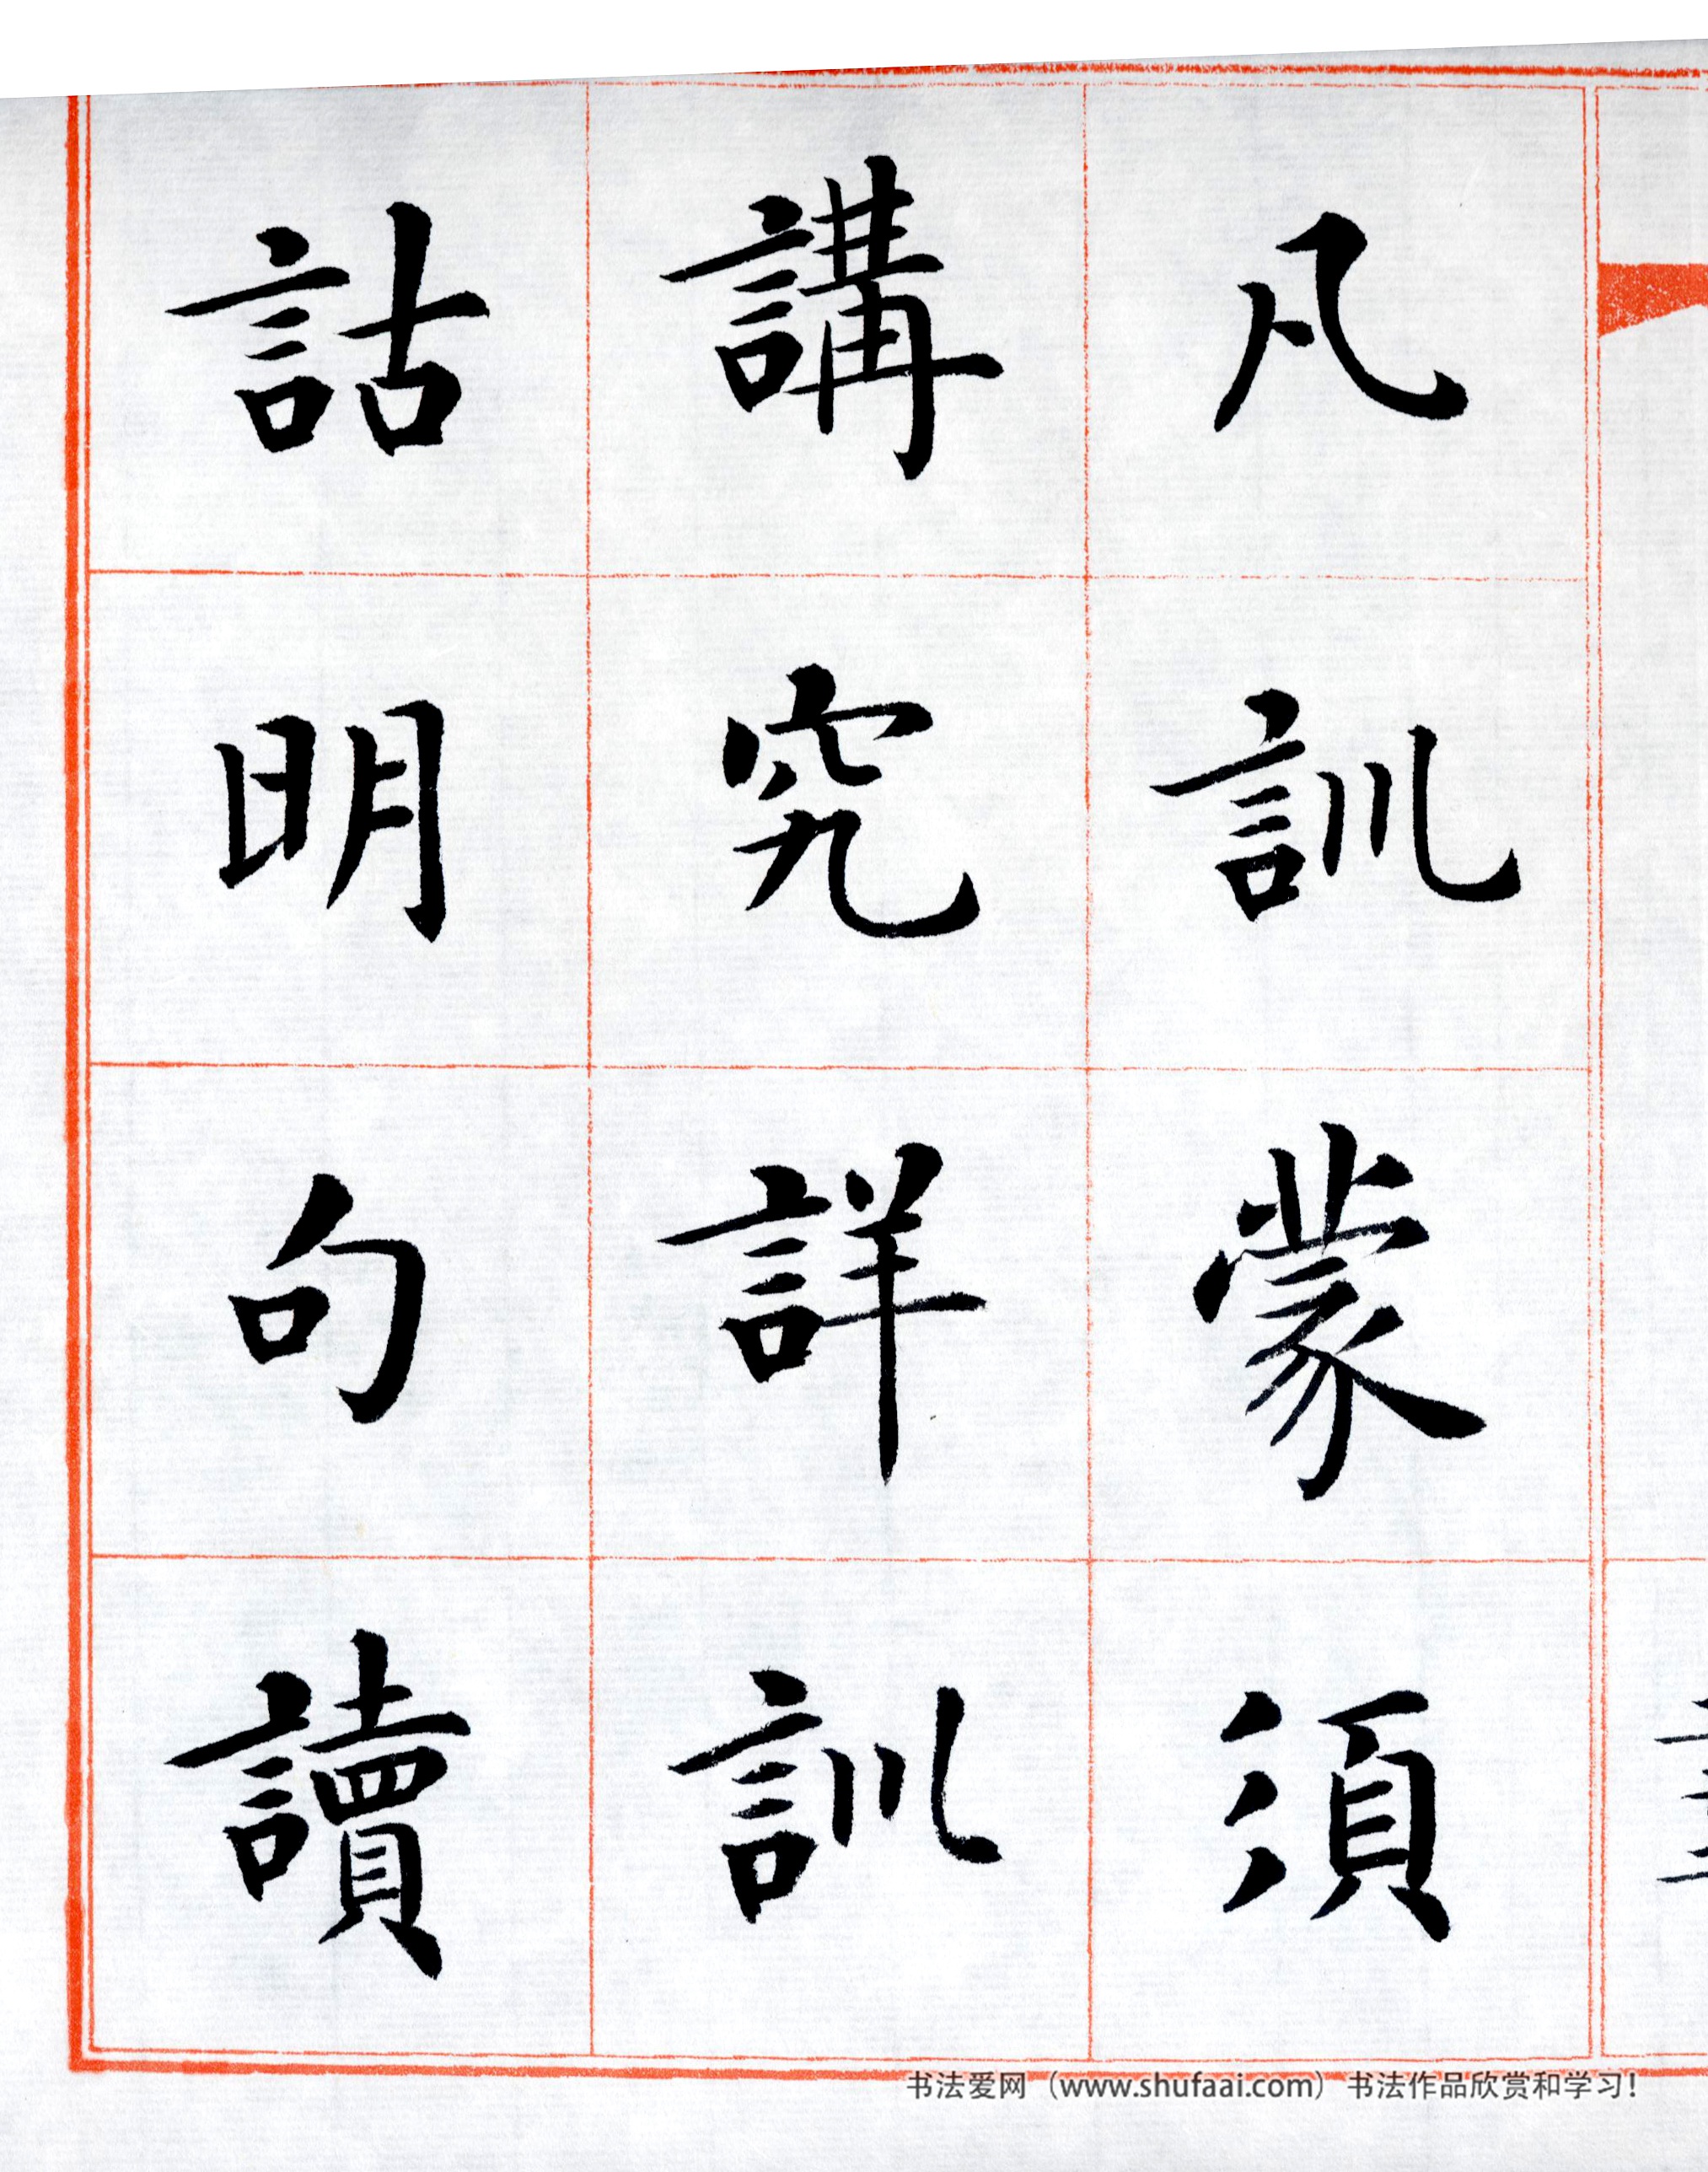 凡訓蒙須
講究詳訓
詁明句讀
书法爱网（www.shufaai.com）书法作品欣赏和学习！